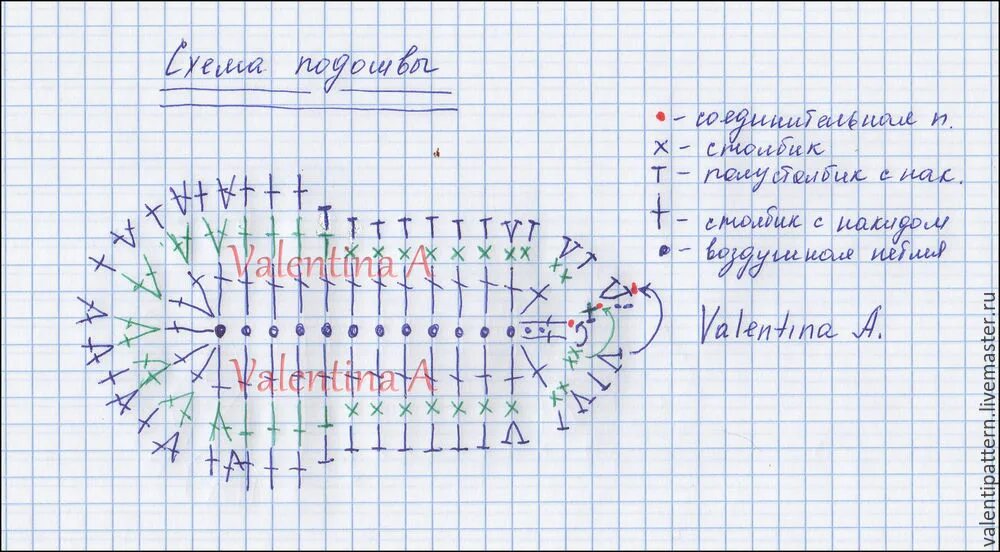 Схема подошвы
• - соединительная п.
x - столбик
т - полустолбик с нак.
† - столбик с накидом
• - воздушная петля
Valentina A.
Valentina A
Valentina A
valentipattern.livemaster.ru